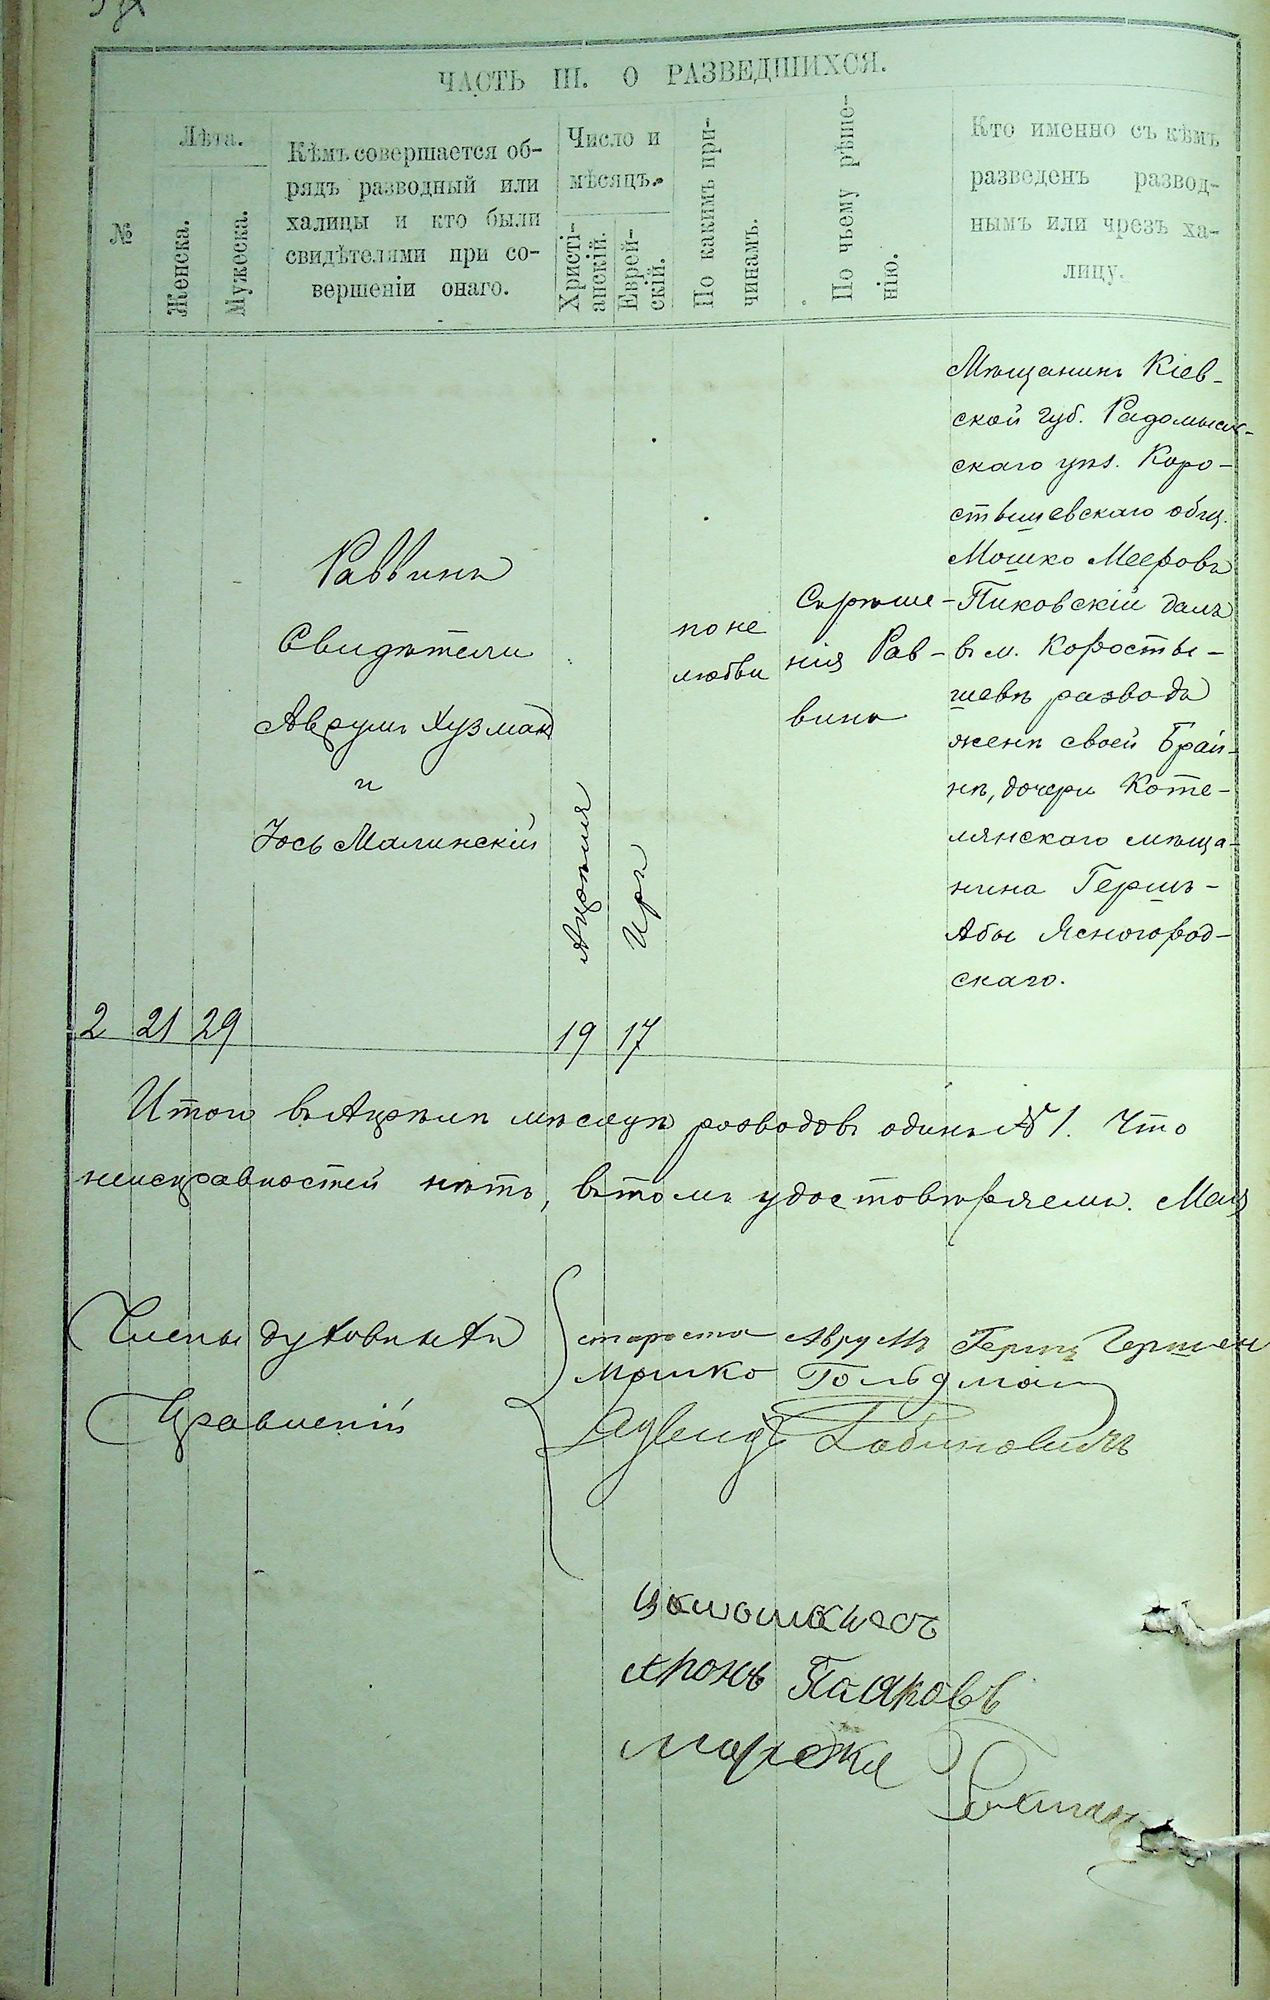 ЧАСТЬ III. О РАЗВЕДШИХСЯ.
№
Лѣта.
Женска.
Мужеска.
Кѣмъ совершается об-
рядъ разводный или
халицы и кто были
свидѣтелями при со-
вершеніи онаго.
Число и
мѣсяцъ.
Христі-
анскій.
Еврей-
скій.
По какимъ при-
чинамъ.
По чьему рѣше-
нію.
Кто именно съ кѣмъ
разведенъ развод-
нымъ или чрезъ ха-
лицу.
2
21
29
Раввинъ
Свидѣтели
Аврумъ Хузман
и
Іось Малинскій
Апрѣля
19
Иръ
17
по не
любви
Съ рѣше-
нія Рав-
вина
Мѣщанинъ Кіев-
ской губ. Радомысль-
скаго уѣз. Коро-
стышевскаго общ.
Мошко Мееровъ
Пиковскій далъ
въ м. Коросты-
шевѣ разводъ
женѣ своей Брай-
нѣ, дочери Коте-
лянскаго мѣща-
нина Гершъ-
Абы Ясногород-
скаго.
Итого въ Апрѣлѣ мѣсяцѣ розводовъ одинъ № 1. Что
неисправностей нѣтъ, въ томъ удостовѣряемъ.
Члены духовныхъ
Правленій
староста Аврумъ Герш
Мошко Гольдман
Рабиновичъ
Аронъ